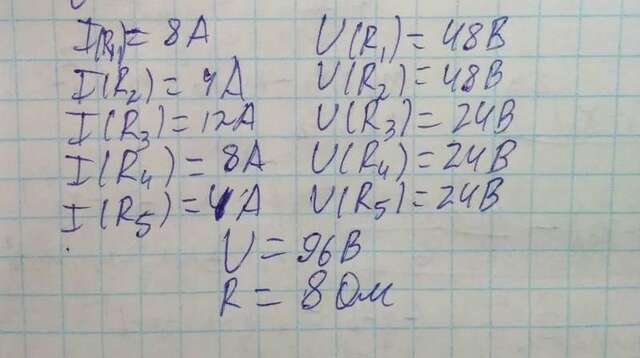 I(R₁) = 8А U(R₁) = 48В
I(R₂) = 4А U(R₂) = 48В
I(R₃) = 12А U(R₃) = 24В
I(R₄) = 8А U(R₄) = 24В
I(R₅) = 4А U(R₅) = 24В
U = 96В
R = 8 Ом